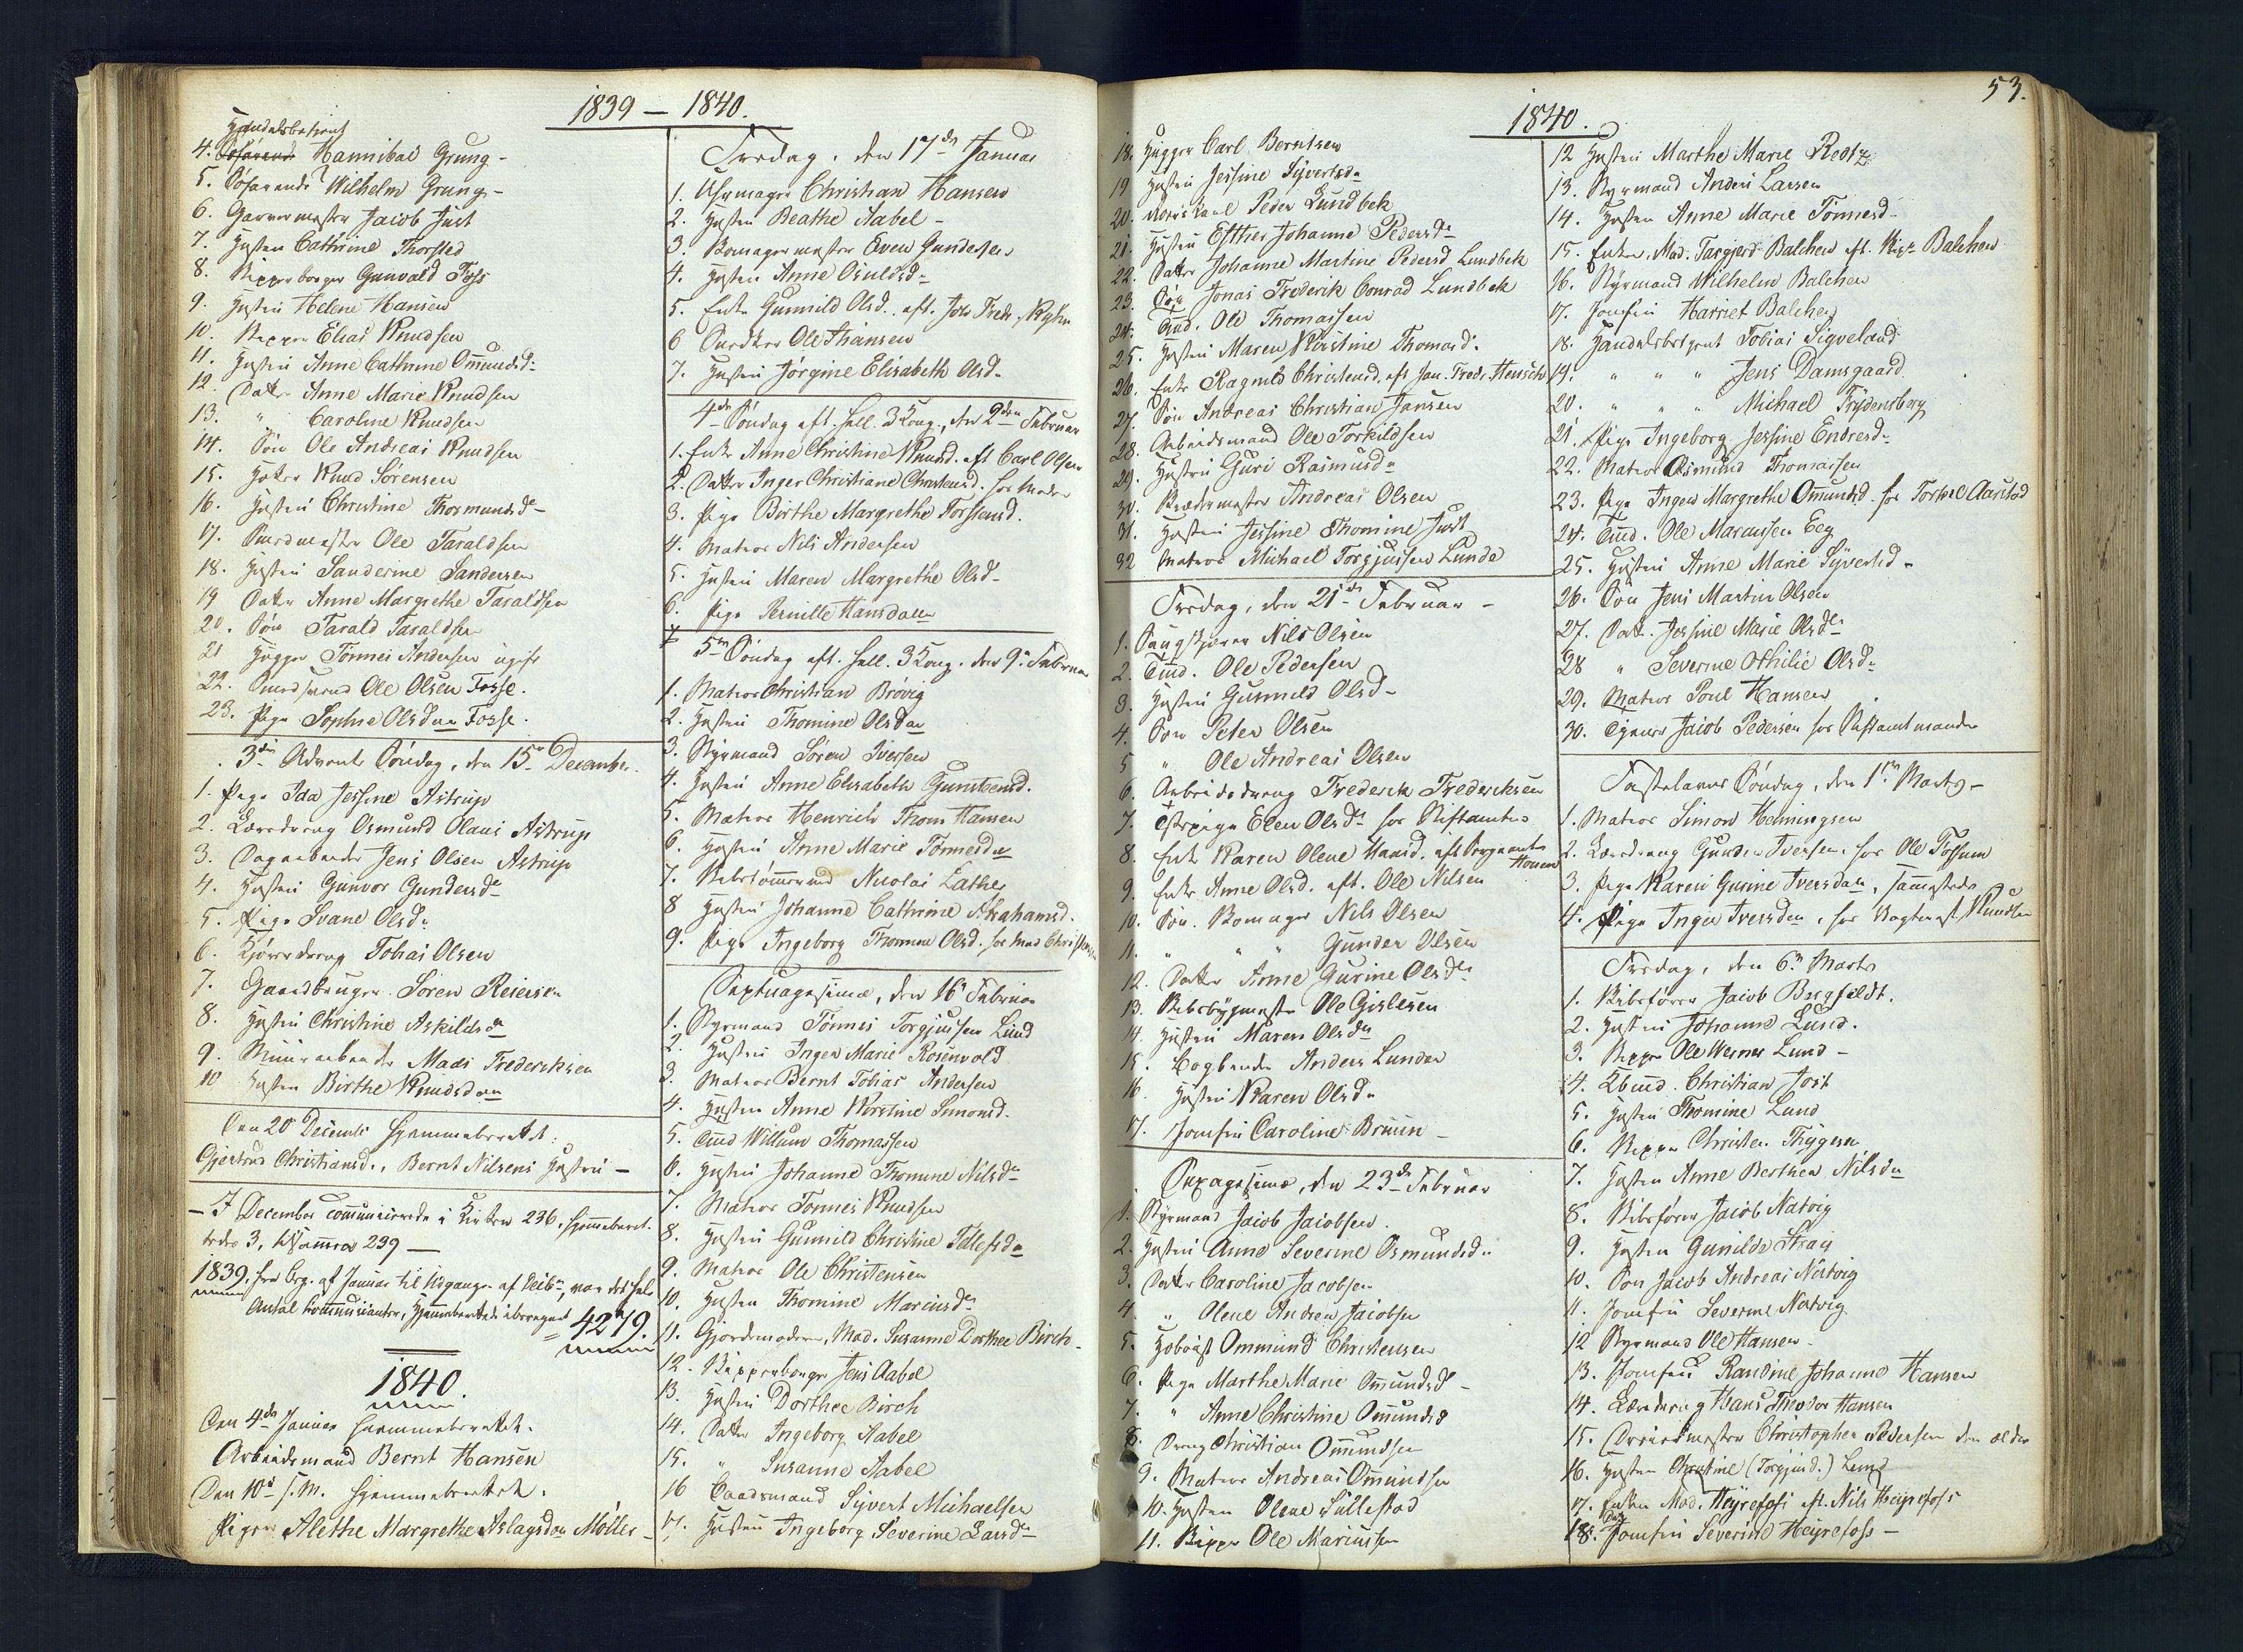 1839 – 1840.
Handelsbetient
4. Søfarende Hannibal Grung -
5. Søfarende Wilhelm Grung -
6. Garvermester Jacob Just
7. Hustru Cathrine Thorsted
8. Skipperborger Gunvald Foss
9. Hustru Helene Hansen
10. Skipper Elias Knudsen
11. Hustru Anne Cathrine Omundsd:
12. Datter Anne Marie Knudsen
13. " Caroline Knudsen
14. Søn Ole Andreas Knudsen
15. Høker Knud Sörensen
16. Hustru Christine Thormundsd -
17. Smedmester Ole Taraldsen
18. Hustru Sanderine Sandersen
19 Datter Anne Margrethe Taraldsen
20. Søn Tarald Taraldsen
21 Hugger Tønnes Andersen ugift
22. Smedsvend Ole Olsen Fosse.
23. Pige Sophie Olsdan Fosse.
3die Advents Søndag, den 15de December.
1. Pige Ida Jessine Astrup
2. Læredreng Osmund Olaus Astrup
3. Dagarbeider Jens Olsen Astrup
4. Hustru Gunvor Gundersdr
5. Pige Svane Olsdr
6. Tobias Olsen
7. Gaardbruger Sören Reiersen
8. Hustru Christine Askildsdn
9. Muurarbeider Mads Fredericksen
10 Hustru Birthe Knudsdan
Den 20 Decemb: hjemmeberettet:
Gjertrud Christiansd., Bernt Nilsens Hustru -
- I December communicerede i Kirken 236, hjemmeberet-
tede 3, tilsammen 239 -
1839, fra Beg. af Januar til Udgangen af Decbr, var det hele
Antal Communicanter, Hjemmeberettede iberegnet = 4279.
1840.
Den 4de Januar hjemmeberettet.
Arbeidsmand Bernt Hansen
Den 10de s. M. hjemmeberettet.
Pigen Alethe Margrethe Aslagsdan Möller -
Fredag, den 17de Januar
1. Uhrmager Christian Hansen
2. Hustru Beathe Aabel -
3. Bomagermester Even Gundersen
4. Hustru Anne Osuldsd -
5. Enke Gunnild Olsd. eft. Joh: Fredr. Kyhn
6 Snedker Ole Hansen
7. Hustru Jörgine Elisabeth Olsd.
4de Söndag eft. hell. 3 Kong., den 2den Februar
1. Enke Anne Christine Knudsd. eft Carl Olsen
2. Datter Inger Christiane Christensd. hos Moder
3. Pige Birthe Margrethe Torstensd.
4. Matros Nils Andersen
5. Hustru Maren Margrethe Olsd -
6. Pige Pernille Hansdatter
5te Söndag eft. hell. 3 Kong. den 9de Februar
1. Matros Christian Brövig
2. Hustru Thomine Olsdan
3. Styrmand Sören Iversen
4. Hustru Anne Elisabeth Gunstensd.
5. Matros Henrich Thom Hansen
6. Hustru Anne Marie Tönnesdn
7. Skibstömmermd Nicolai Lathe
8 Hustru Johanne Cathrine Abrahamsd.
9. Pige Ingeborg Thomine Olsd. hos Mad Christensen
Septuagesimæ, den 16de Februar
1. Styrmand Tönnes Torgjussen Lund
2. Hustru Inger Marie Rosenvold
3. Matros Bernt Tobias Andersen
4. Hustru Anne Kirstine Simonsd.
5. Tmd Willum Thomassen
6. Hustru Johanne Thomine Nilsdn
7. Matros Tönnes Knudsen
8. Hustru Gunnild Christine Tellefsdn
9. Matros Ole Christensen
10. Hustru Thomine Mariusdr
11. Gjordemoderen, Mad. Susanne Dorthea Birch -
12. Skipperborger Jens Aabel
13. Hustru Dorthea Birch
14. Datter Ingeborg Aabel
15. " Susanne Aabel
16 Baadsmand Syvert Michaelsen
17. Hustru Ingeborg Severine Larsdn
53.
1840.
18. Hugger Carl Berntsen
19 Hustru Jessine Syvertsdr
20. Peder Lundbek
21. Hustru Esther Johanne Pedersdr
22. Datter Johanne Martine Pedersd Lundbek
23. Søn Jonas Frederik Conrad Lundbek
24. Tmd. Ole Thomassen
25. Hustru Maren Kirstine Thomasd.
26. Enke Ragnild Christensd. eft Jan. Fredr Hensch
27. Søn Andreas Christian Jansen
28. Arbeidsmand Ole Torkildsen
29. Hustru Guri Rasmusdr
30. Skrædermester Andreas Olsen
31. Hustru Jessine Thomine Just
32 Matros Michael Torgjussen Lunde
Fredag, den 21de Februar -
1. Nils Olsen
2. Tmd. Ole Pedersen
3. Hustru Gunnild Olsd -
4. Søn Peter Olsen
5 " Ole Andreas Olsen
6. Arbeidsdreng Frederik Fredericksen
7. Tjstpige Elen Olsdr hos Stiftamtm.
8. Enke Karen Olene Haasd. eft Sergeant Honen
9. Enke Anne Olsd. eft. Ole Nilsen
10. Søn. Bomager Nils Olsen
11. " " " Gunder Olsen
12. Datter Anne Gurine Olsdr
13. Skibsbygmester Ole Gislesen
14. Hustru Maren Olsdn
15. Bogbinder Anders Lunder
16. Hustru Karen Olsdn
17. Jomfru Caroline Bruun -
Sexagesimæ, den 23de Februar
1. Styrmand Jacob Jacobsen.
2. Hustru Anne Severine Osmundsdr
3. Datter Caroline Jacobsen
4. " Olene Andrea Jacobsen
5. Ommund Christensen
6. Pige Marthe Marie Omundsdr -
7. " Anne Christine Omundsd
8. Dreng Christian Omundsen
9. Matros Andreas Omundsen
10. Hustru Olene Sillestad
11. Skipper Ole Mariussen
12 Hustru Marthe Marie Redtz
13. Styrmand Anders Larsen
14. Hustru Anne Marie Tönnesd -
15. Enken, Mad. Targjerd Balchen eft. Balchen
16. Styrmand Wilhelm Balchen
17. Jomfru Harriet Balchen
18. Handelsbetjent Tobias Sigveland
19. " " " Jens Damsgaard
20. " " " Michael Frydensberg
21. Pige Ingeborg Jessine Endresdr
22. Matros Osmund Thomassen
23. Pige Inger Margrethe Omundsd. hos Torkel Aarstad
24. Tmd. Ole Maraussen Eeg
25. Hustru Anne Marie Syvertsd -
26. Søn Jens Martin Olsen
27. Datt. Jessine Marie Olsdr
28 " Severine Othilie Olsdr
29. Matros Poul Hansen
30. Tjener Jacob Pedersen hos Stiftamtmanden
Fastelavns Söndag, den 1ste Marts -
1. Matros Simon Henningsen
2. Læredreng Gunder Iversen, hos Ole Fossum
3. Pige Karen Gurine Iversdan, sammesteds
4. Pige Inger Iversdan, hos Vagtmest. Knudsen
Fredag, den 6te Marts
1. Skibsfører Jacob Bergfeldt.
2. Hustru Johanne Lund.
3. Skipper Ole Werner Lund -
4. Christian Just
5. Hustru Thomine Lund
6. Skipper Christen Thygesen
7. Hustru Anne Berthea Nilsdn
8. Skibsfører Jacob Natvig
9. Hustru Gunilde Stray
10. Søn Jacob Andreas Natvig
11. Jomfru Severine Natvig
12 Styrmand Ole Hansen -
13. Jomfru Randine Johanne Hansen
14. Læredreng Hans Theodor Hansen
15. Dreiermester Christopher Pedersen den ældre
16. Hustru Christine (Torgjusd.) Lund
17. Enken Mad. Heyrefoss eft. Nils Heyrefoss
18. Jomfru Severine Heyrefoss -